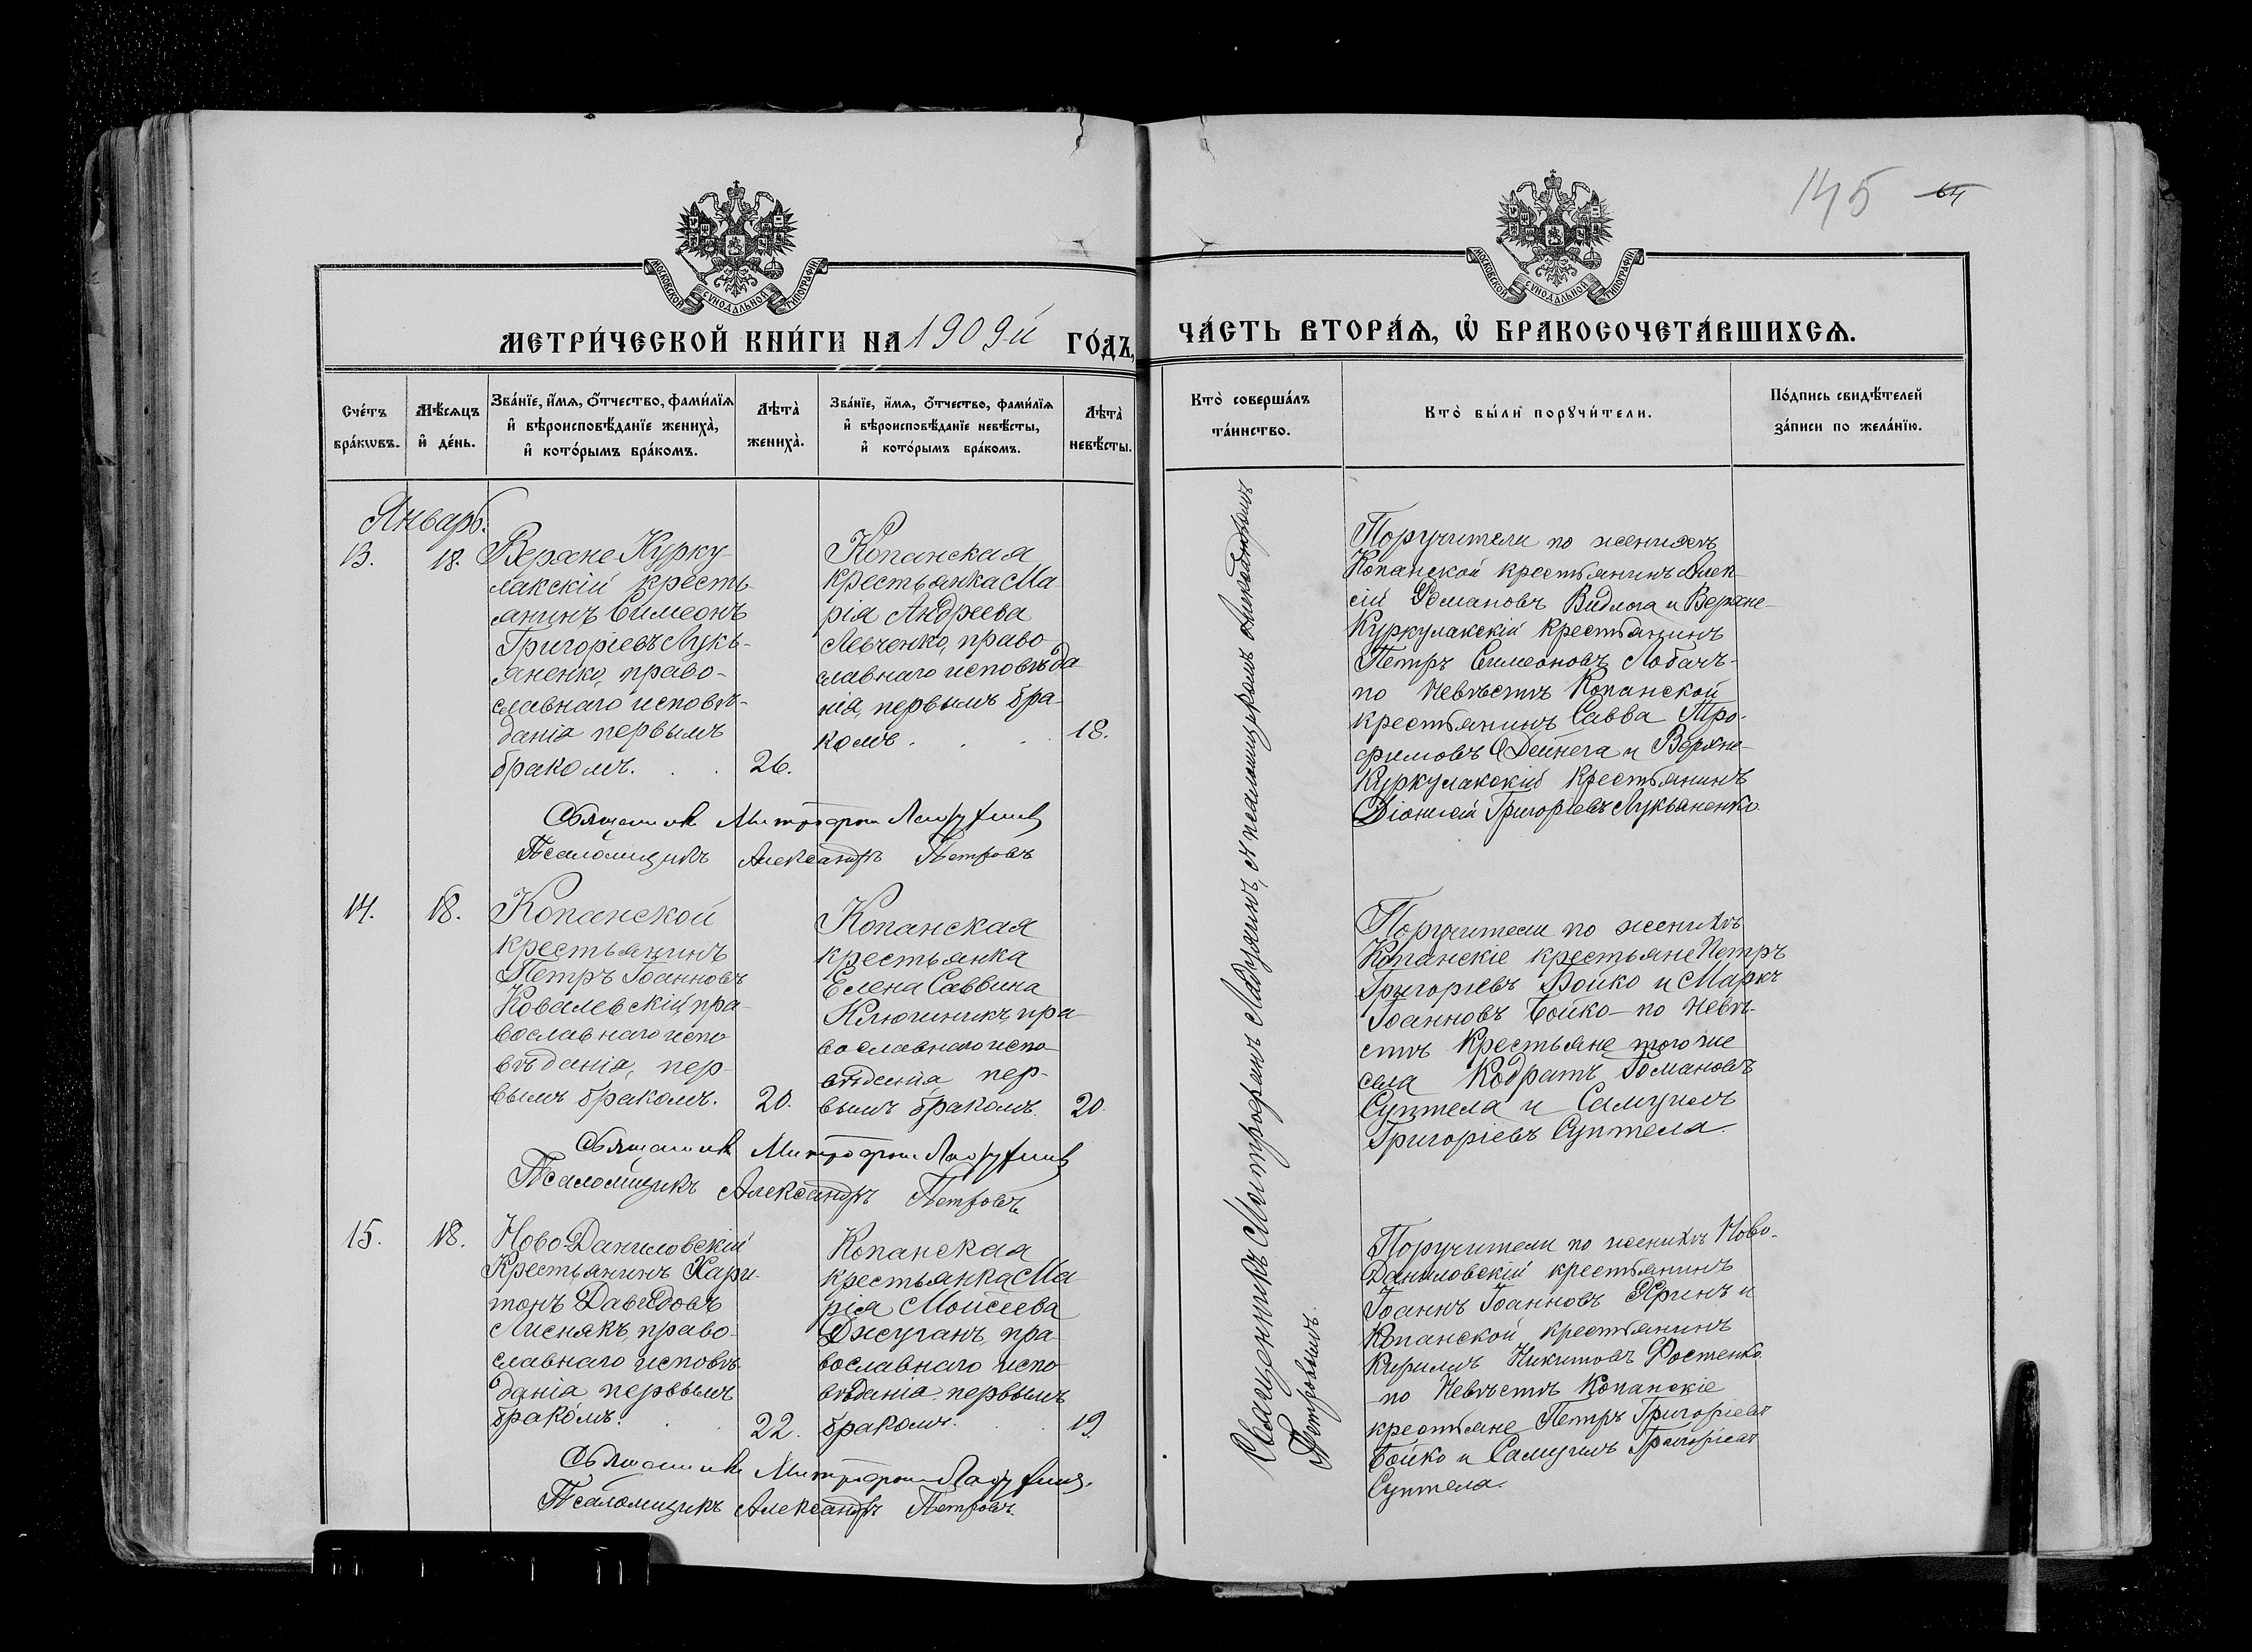 145 64
МОСКОВСКОЙ СѴНОДАЛЬНОЙ ТИПОГРАФІИ
МОСКОВСКОЙ СѴНОДАЛЬНОЙ ТИПОГРАФІИ
МЕТРИ́ЧЕСКОЙ КНИ́ГИ НА 1909-й ГО́ДЪ,
ЧА́СТЬ ВТОРА́Ѧ, Ѽ БРАКОСОЧЕТА́ВШИХСѦ.
Сче́тъ
бра́кѡвъ.
Мѣ́сѧцъ
и҆ де́нь.
Зва́нїе, и҆́мѧ, ѻ҆́тчество, фами́лїѧ
и҆ вѣроисповѣ́данїе жениха̀,
и҆ кото́рымъ бра́комъ.
Лѣта̀
жениха̀.
Зва́нїе, и҆́мѧ, ѻ҆́тчество, фами́лїѧ
и҆ вѣроисповѣ́данїе невѣ́сты,
и҆ кото́рымъ бра́комъ.
Лѣта̀
невѣ́сты.
Кто̀ соверша́лъ
та́инство.
Кто̀ бы́ли порꙋчи́тели.
По́дпись свидѣ́телей
за́писи по жела́нїю.
Январь.
13.
18.
Верхне-Курку-
лакскій кресть-
янинъ Симеонъ
Григоріевъ Лукь-
яненко, право-
славнаго исповѣ-
данія первымъ
бракомъ. . .
26.
Копанская
крестьянка Ма-
рія Андреева
Левченко, право
славнаго исповѣда
нія, первымъ бра-
комъ . . .
18.
Поручители по женихѣ
Копанской крестьянинъ Алек-
сій Романовъ Видлога и Верхне-
Куркулакскій крестьянинъ
Петръ Симеоновъ Лобачъ-
по невѣстѣ Копанской
крестьянинъ Савва Тро-
фимовъ Дейнега и Верхне-
Куркулакскій крестьянинъ
Діонисій Григоріевъ Лукьяненко.
Священникъ Митрофанъ
Псаломщикъ Александръ Петровъ
14.
18.
Копанской
крестьянинъ
Петръ Іоанновъ
Ковалевскій, пра-
вославнаго испо
вѣданія, пер-
вымъ бракомъ.
20.
Копанская
крестьянка
Елена Саввина
Ключникъ, пра-
вославнаго испо-
вѣданія пер-
вымъ бракомъ.
20
Поручители по женихѣ
Копанскіе крестьяне Петръ
Григоріевъ Бойко и Маркъ
Іоанновъ Бойко-по невѣ-
стѣ крестьяне того же
села Кодратъ Романовъ
Суптела и Самуилъ
Григоріевъ Суптела.
Священникъ Митрофанъ
Псаломщикъ Александръ Петровъ
15.
18.
Ново-Даниловскій
крестьянинъ Хари-
тонъ Давидовъ
Лиснякъ, право-
славнаго исповѣ-
данія первымъ
бракомъ. . .
22.
Копанская
крестьянка Ма-
рія Моисеева
Джуганъ, пра-
вославнаго испо
вѣданія первымъ
бракомъ. .
19.
Поручители по женихѣ Ново-
Даниловскій крестьянинъ
Іоаннъ Іоанновъ и
Копанской крестьянинъ
Кириллъ Никитовъ Ростенко
-по невѣстѣ Копанскіе
крестьяне Петръ Григоріевъ
Бойко и Самуилъ Григоріевъ
Суптела.
Священникъ Митрофанъ
Псаломщикъ Александръ Петровъ.
Священникъ Митрофанъ съ псаломщикомъ Александромъ
Петровымъ.